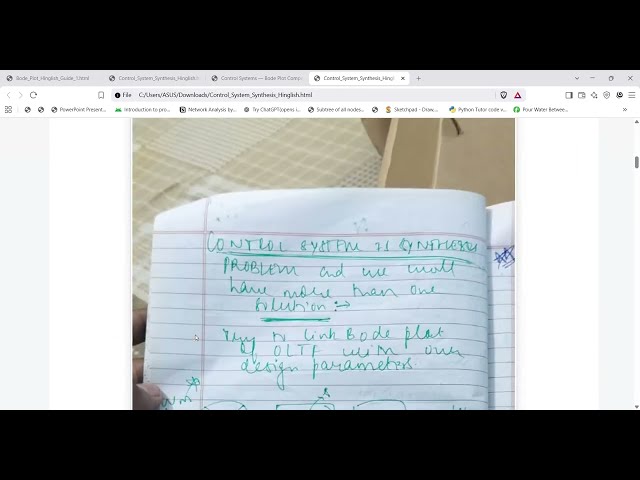 Bode_Plot_Hinglish_Guide_1.html
Control_System_Synthesis_Hinglish.h
Control Systems — Bode Plot Comp
Control_System_Synthesis_Hingl
File C:/Users/ASUS/Downloads/Control_System_Synthesis_Hinglish.html
PowerPoint Present...
Introduction to pro...
Network Analysis by...
Try ChatGPT(opens i...
Subtree of all nodes...
Sketchpad - Draw,...
Python Tutor code v...
Pour Water Betwee...
CONTROL SYSTEM IS SYNTHESIS
PROBLEM and we will
have more than one
solution :→
Try to link Bode plot
of OLTF with our
design parameters